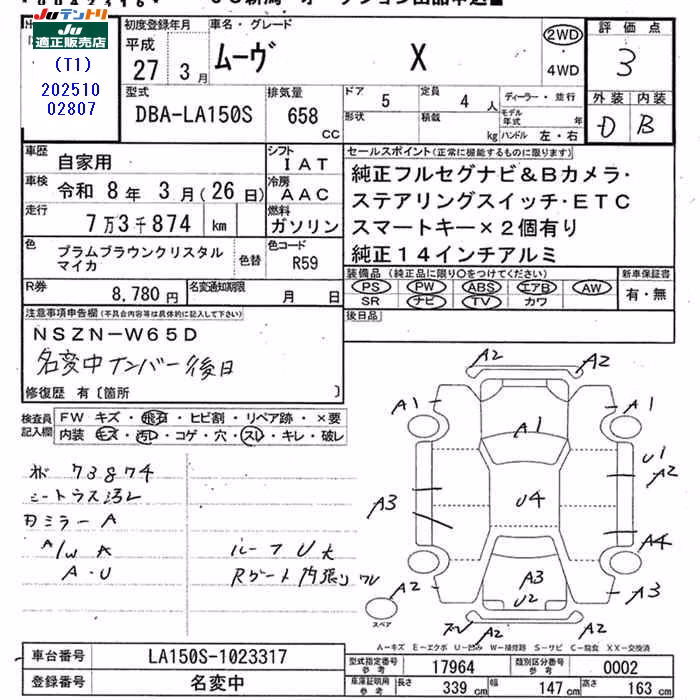 Juテントリ
適正販売店
(T1)
202510
02807
初度登録年月
平成
27年3月
車名・グレード
ムーヴ X
2WD
・
4WD
評価点
3
型式
DBA-LA150S
排気量
658 CC
ドア 5
形状
定員 4人
積載 kg
ディーラー・並行
モデル年式 年
ハンドル 左・右
外装 内装
D B
車歴 自家用
シフト IAT
車検 令和 8年 3月(26日)
冷房 AAC
走行 7万3千874 km
燃料 ガソリン
色 プラムブラウンクリスタル
マイカ
色替
色コード R59
R券 8,780円
名変通知期限 月 日
セールスポイント(正常に機能するものに限ります)
純正フルセグナビ&Bカメラ・
ステアリングスイッチ・ETC
スマートキー×2個有り
純正14インチアルミ
装備品(純正品に限り○をつけてください)
PS PW ABS エアB AW
SR ナビ TV カワ
新車保証書
有・無
後日品
注意事項申告欄(不具合内容等は具体的に記入して下さい)
NSZN-W65D
名変中ナンバー後日
修復歴 有〔箇所 〕
検査員
記入欄
FW キズ・飛石・ヒビ割・リペア跡・×要
内装 キズ・汚レ・コゲ・穴・スレ・キレ・破レ
73874
シートラス汚レ
ミラーA
A/W
A・U
ルーフU大
Rゲート内張りワレ
A2 A2
A1 A1
A1
U1
A2
A3
U4
A4
A2
A3
U2
A3
A2
スペア
A-キズ E-エクボ U-凹み W-補修跡 S-サビ C-腐食 XX-交換済
車台番号 LA150S-1023317
登録番号 名変中
型式指定番号 参考 17964
類別区分番号 参考 0002
車庫証明用 参考
長さ 339 cm 幅 147 cm 高さ 163 cm